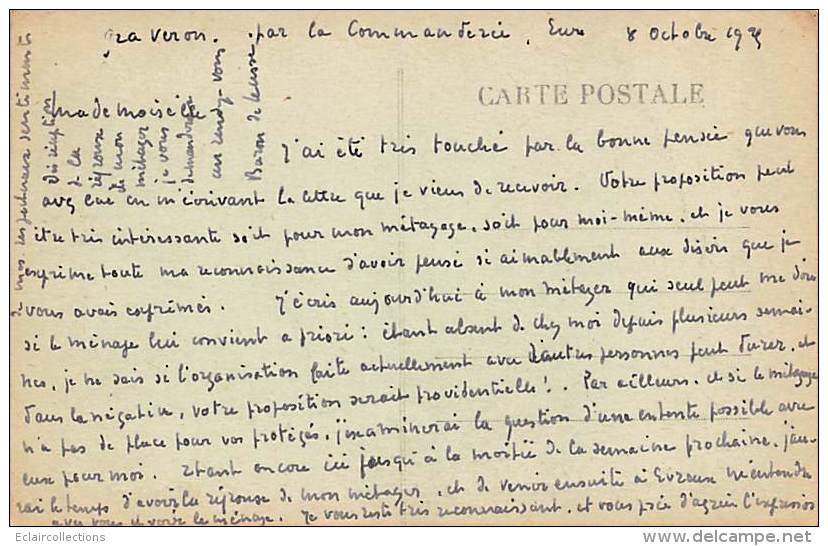 Graveron. par la Commanderie, Eure 8 Octobre 1925
CARTE POSTALE
Mademoiselle
J'ai été très touché par la bonne pensée que vous
avez eue en m'écrivant la lettre que je viens de recevoir. Votre proposition peut
être très intéressante soit pour mon métayage, soit pour moi-même, et je vous
exprime toute ma reconnaissance d'avoir pensé si aimablement aux désirs que je
vous avais exprimés. J'écris aujourd'hui à mon métayer qui seul peut me dire
si le ménage lui convient a priori : étant absent de chez moi depuis plusieurs semai-
nes, je ne sais si l'organisation faite actuellement avec d'autres personnes peut durer, et
dans la négative, votre proposition serait providentielle ! . Par ailleurs, et si le métayage
n'a pas de place pour vos protégés, j'examinerai la question d'une entente possible avec
eux pour moi. Etant encore ici jusqu'à la moitié de la semaine prochaine, j'au-
rai le temps d'avoir la réponse de mon métayer, et de venir ensuite à Evreux m'entendre
avec vous et voir le ménage. Je vous reste très reconnaissant, et vous prie d'agréer l'expression
de mes respectueux sentiments
dès réception
de la
réponse
de mon
métayer
je vous
demanderai
un rendez-vous
Baron de
Eclaircollections
delcampe.net